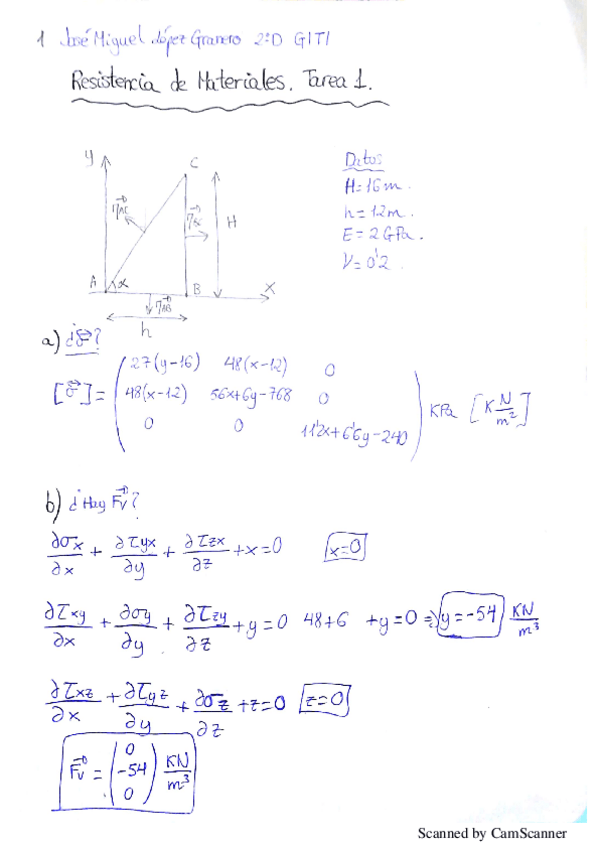 1 José Miguel López Granero 2ºD GITI
Resistencia de Materiales. Tarea 1.
y
C
Datos
H=16m.
h=12m.
E=2GPa.
ν=0'2.
H
A
α
B
x
h
a) ¿σ?
[σ] = ( 27(y-16) 48(x-12) 0
48(x-12) 56x+6y-768 0
0 0 11'2x+6'6y-240 ) KPa [K N/m²]
b) ¿Hay Fv?
∂σx/∂x + ∂τyx/∂y + ∂τzx/∂z + x=0 x=0
∂τxy/∂x + ∂σy/∂y + ∂τzy/∂z + y=0 48+6 +y=0 ⇒ y=-54 KN/m³
∂τxz/∂x + ∂τyz/∂y + ∂σz/∂z + z=0 z=0
Fv = ( 0 -54 0 ) KN/m³
Scanned by CamScanner